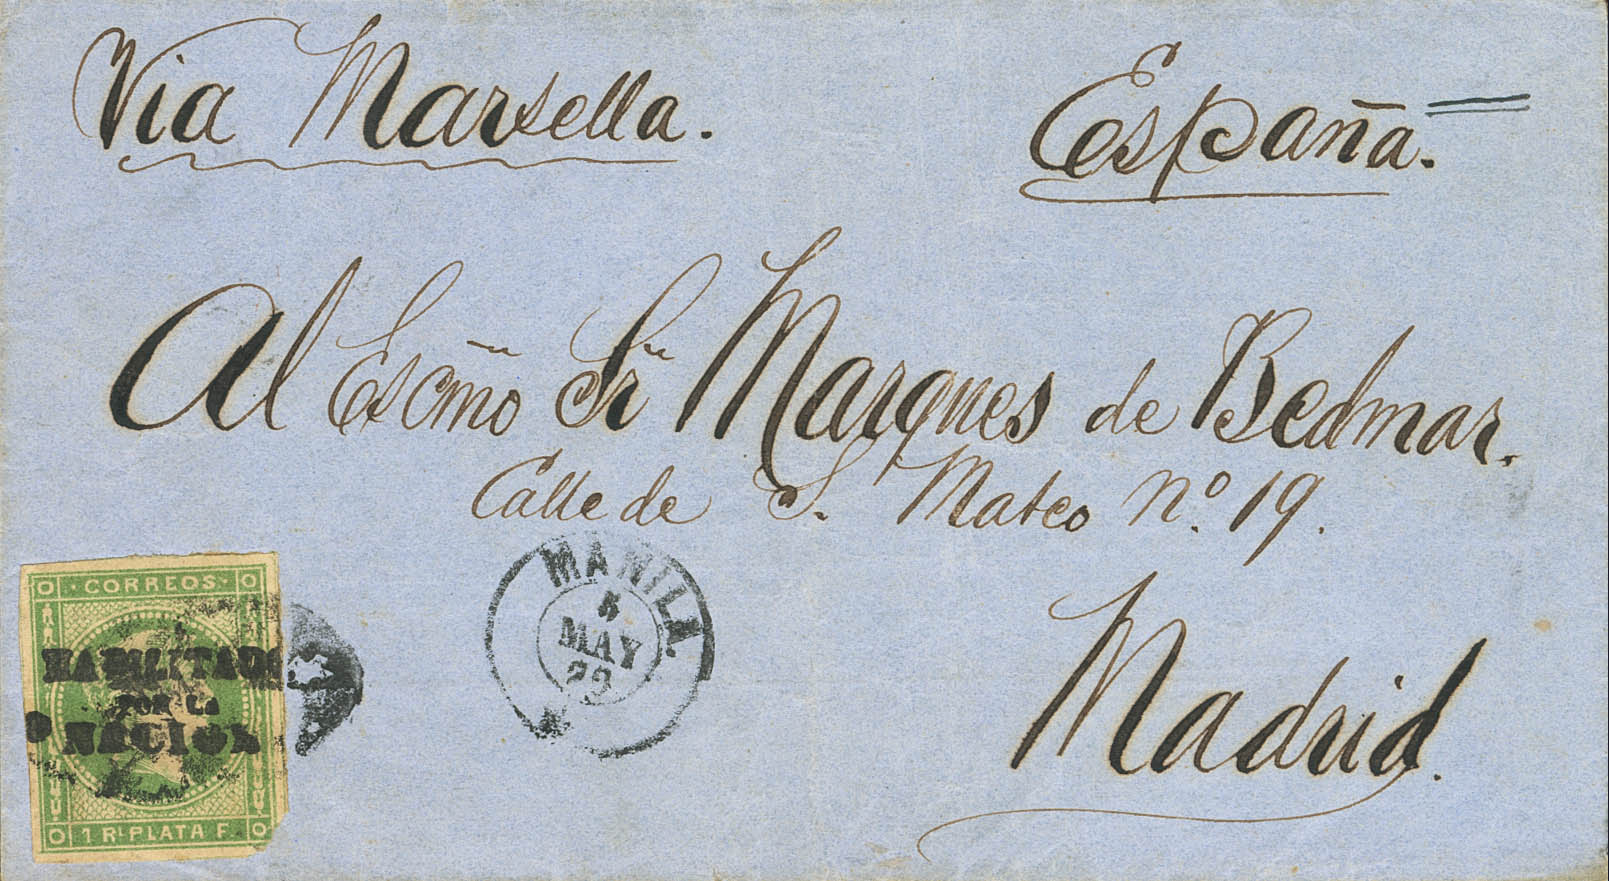 Via Marsella.
España.
Al Escmo Sr Marques de Bedmar.
Calle de S. Mateo Nº. 19.
Madrid.
MANILA
5
MAY
73
CORREOS
HABILITADO
POR LA
NACION
1 RL PLATA F.